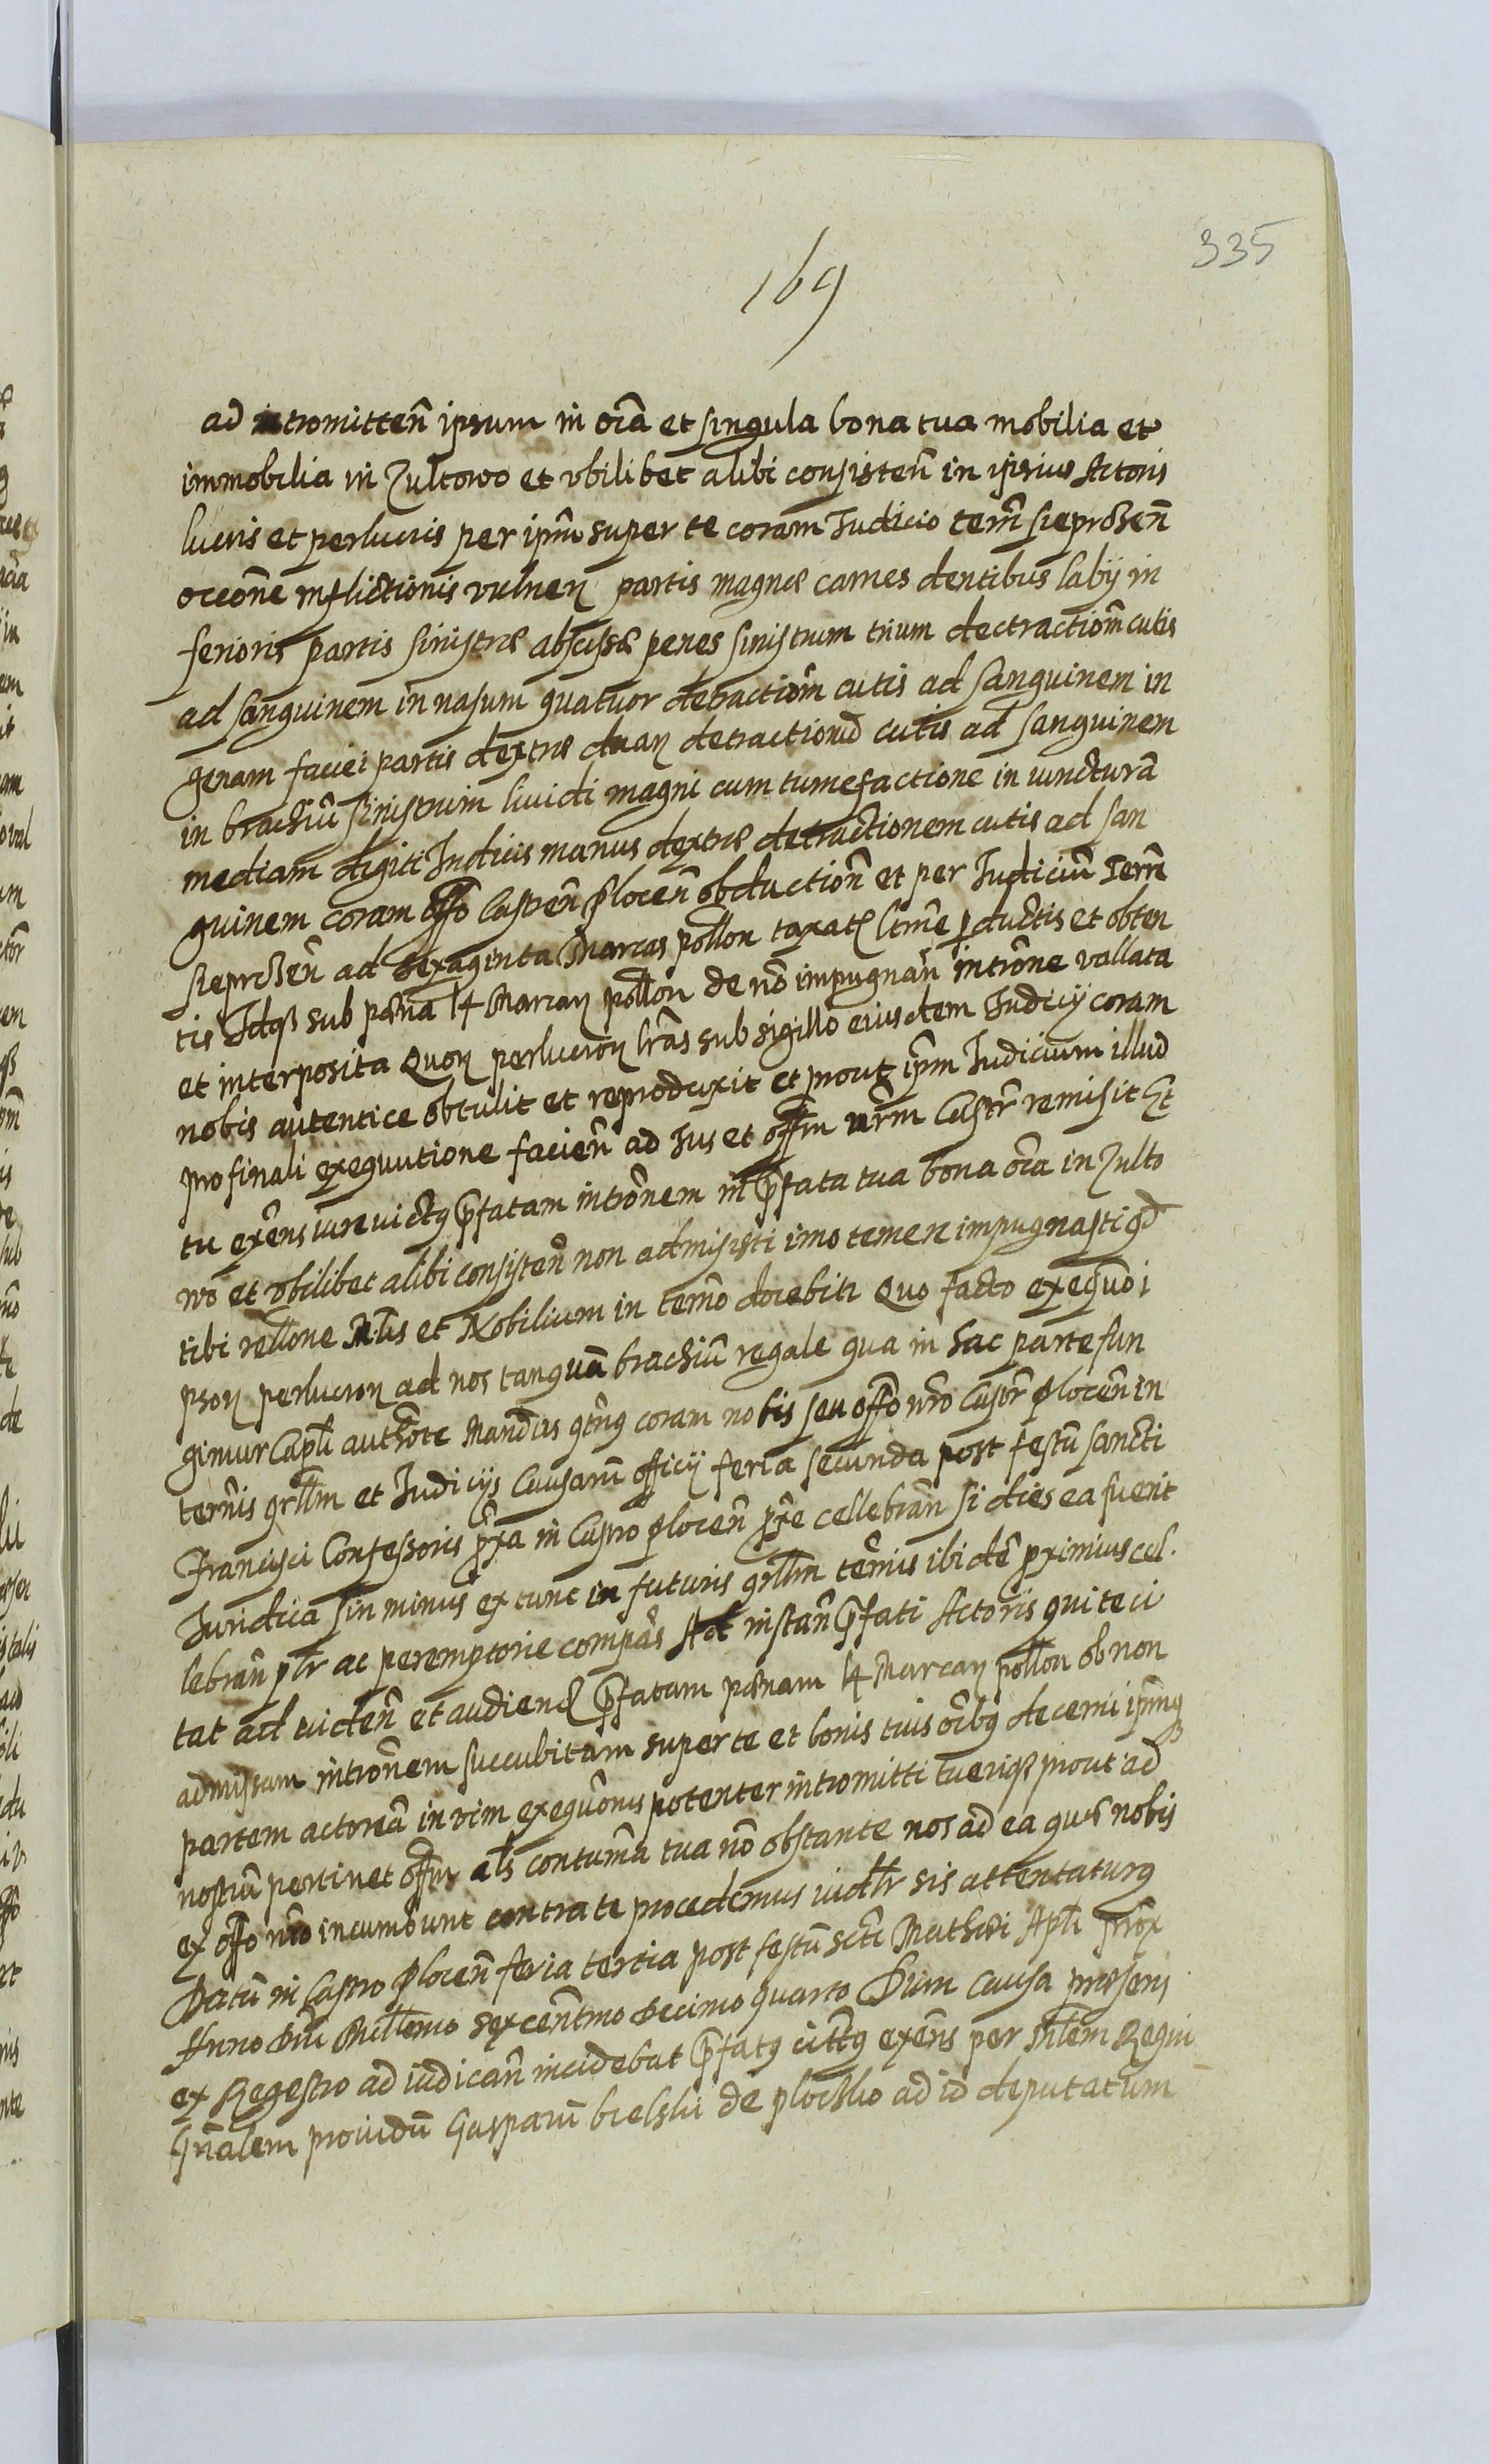 335
169
ad intromitten̄ ipsum in oīa et singula bona tua mobilia et
immobilia in Zultowo et vbilibet alibi consisten̄ in ipsius Actoris
lucris et perlucris per ipm̄ super te coram Iudicio terrn̄ sieprcen̄
occōne inflictionis vulner partis magnæ carnes dentibus labij in
ferioris partis sinistræ abscissæ penes sinistrum trium dectractiom̄ cutis
ad sanguinem in nasum quatuor detractiom̄ cutis ad sanguinem in
genam faciei partis dextræ duar detractionū cutis ad sanguinem
in brachiū sinistrum liuidi magni cum tumefactione in iuncturā
mediam digiti Indicis manus dextræ detractionem cutis ad san
guinem coram offo Castren̄ plocen̄ obduction̄ et per Iudiciū Terrn̄
sieprcen̄ ad sexaginta Marcas pollon taxatr ltīme pductis et obten
tis Idq3 sub pæna 14 Marcar pollon de nō impugnan̄ introm̄e vallata
et interposita Quor perlucror lrās sub sigillo eiusdem Iudicij coram
nobis autentice obtulit et reproduxit et prout ipm̄ Iudicium illud
pro finali exequutione facien̄ ad Ius et offm nrm̄ Castr̄ remisit Et
tu exēns iure victq p̄fatam intrōnem in p̄fata tua bona oīa in Zulto
wo et vbilibet alibi consisten̄ non admisisti imo temere impugnasti qd̄
tibi rellone Mlis et Nobilium in termō docebitr Quo facto exequōi
psor perlucror ad nos tanquā brachiū regale qua in hac parte fun
gimur Capli authōte Mandās qtn̄q coram nobis seu offo nrō Castr̄ plocen̄ in
termīs qrllm̄ et Iudicijs Causarū officij feria secunda post festū sancti
Francisci Confessoris pxa in Castro plocen̄ pxe cellebran̄ si dies ea fuerit
Iuridica sin minus ex tunc in futuris qrllm̄ termīs ibidē proximius cel
lebran̄ plr ac peremptorie compās Ad instan̄ p̄fati Actoris qui te ci
tat ad viden̄ et audiend p̄fatam pænam 14 Marcar pollon ob non
admissam intrōnem succubitam super te et bonis tuis oībq decerni ipm̄q3
partem actoreā in vim exequōnis potenter intromitti tueriq3 prout ad
nostrū pertinet offm als contumā tua nō obstante nos ad ea quæ nobis
ex offo nrō incumbunt contra te procedemus iudlr sis attentaturq
Datū in Castro plocen̄ feria tertia post festū scti Mathæi Apli prōx
Anno Dni Millemo sexcentmo decimo quarto Dum causa præsens
ex Regestro ad iudican̄ incidebat p̄fatq citt̄q exēns per Mlem Regni
Gn̄alem prouidū Gasparū bielski de plocko ad id deputatum